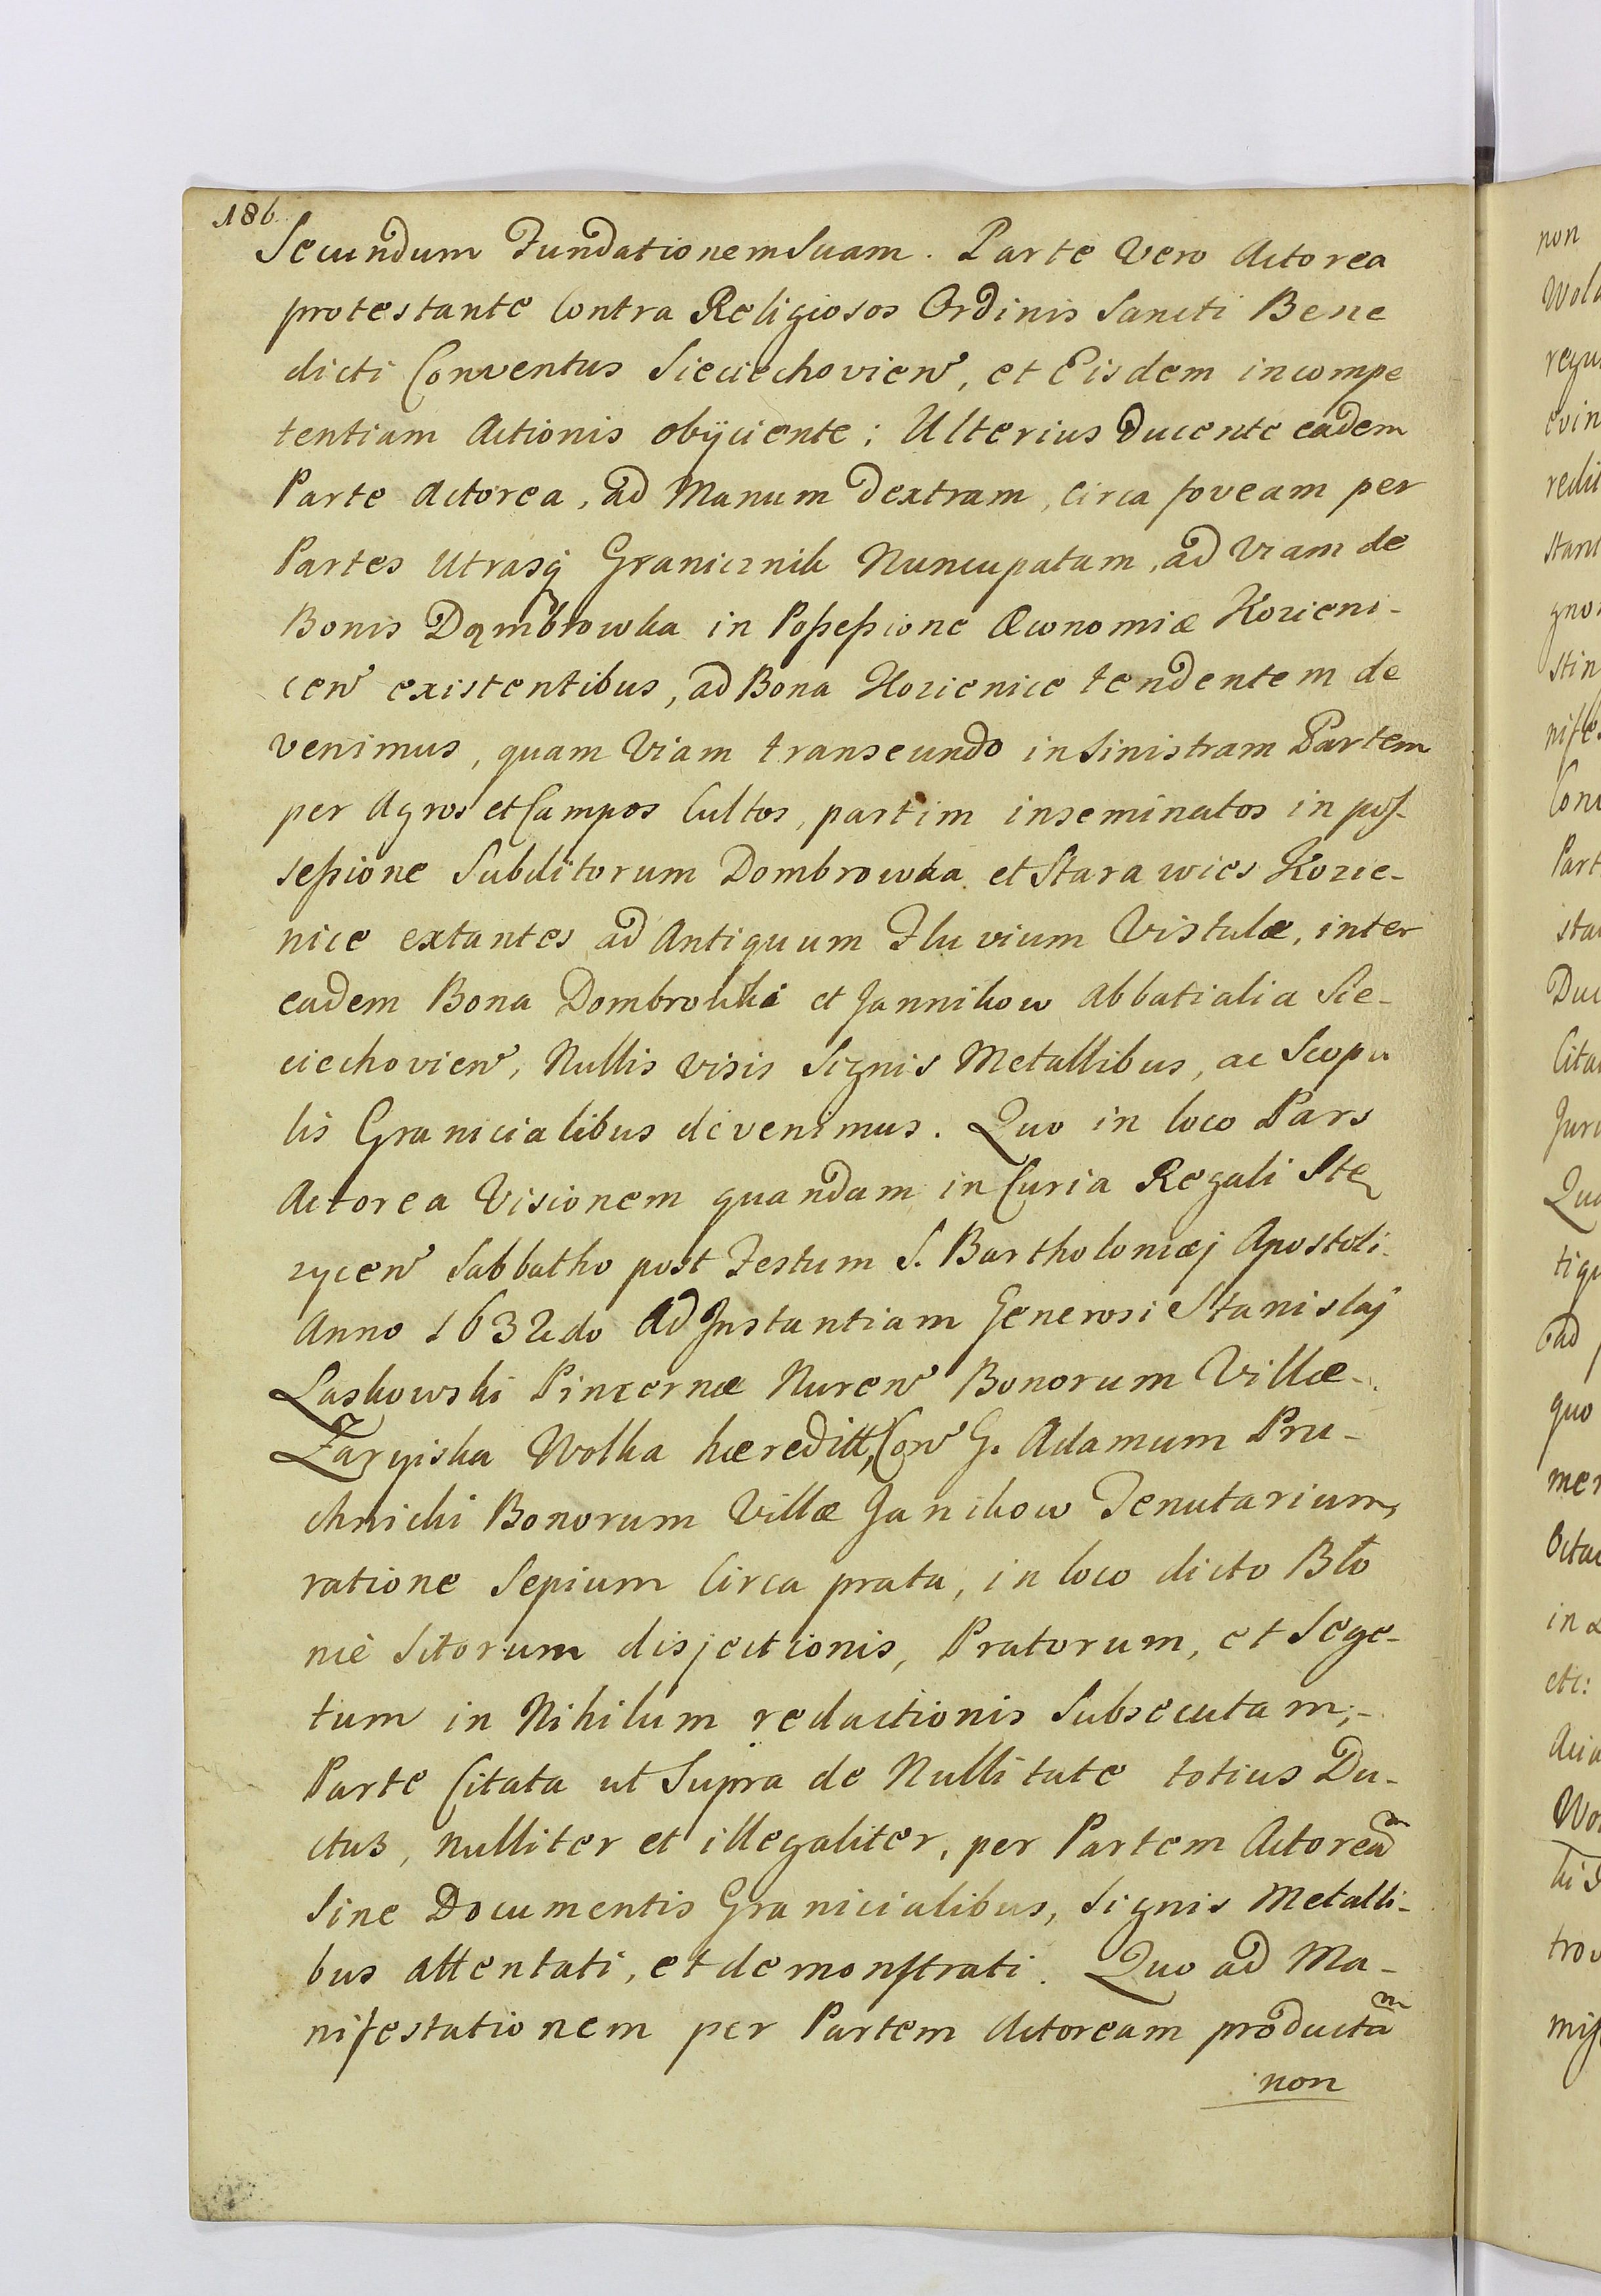 186.
Secundum Fundationem Suam. Parte Vero Actorea
protestante Contra Religiosos Ordinis Sancti Bene
dicti Conventus Sieciechovien, et Eisdem incompe
tentiam Actionis obijciente; Ulterius Ducente eadem
Parte Actorea, ad Manum Dextram, circa foveam per
Partes Utrasq Granicznik Nuncupatam, ad Viam de
Bonis Dąmbrowka in Poßeßione Œconomiæ Kozieni-
cen existentibus, ad Bona Kozienice tendentem de
venimus, quam Viam transeundo in Sinistram Partem
per Agros et Campos Cultos, partim inseminatos in pos-
seßione Subditorum Dombrowka et Stara wies Kozie-
nice extantes ad Antiquum Fluvium Vistulæ, inter
eadem Bona Dombrowka et Jannikow Abbatialia Sie-
ciechovien, Nullis visis Signis Metallibus, ac Scopu
lis Granicialibus devenimus. Quo in loco Pars
Actorea Visionem quandam in Curia Regali Stę
zycen Sabbatho post Festum S. Bartholomæj Apostoli
Anno 1632do Ad Instantiam Generosi Stanislaj
Laskowski Pincernæ Nuren Bonorum Villæ-
Zagyiska Wolka hæreditt, Con G. Adamum Pru-
chnicki Bonorum Villæ Janikow Tenutarium,
ratione Sepium Circa prata, in loco dicto Bło
nie Sitorum disjectionis, Pratorum, et Sege-
tum in Nihilum redactionis Subsecutam;-
Parte Citata ut Supra de Nullitate totius Du-
ctus, nulliter et illegaliter, per Partem Actoream
Sine Documentis Granicialibus, Signis Metalli-
bus attentati, et demonstrati. Quo ad Ma-
nifestationem per Partem Actoream productam
non
non
quo
etc: